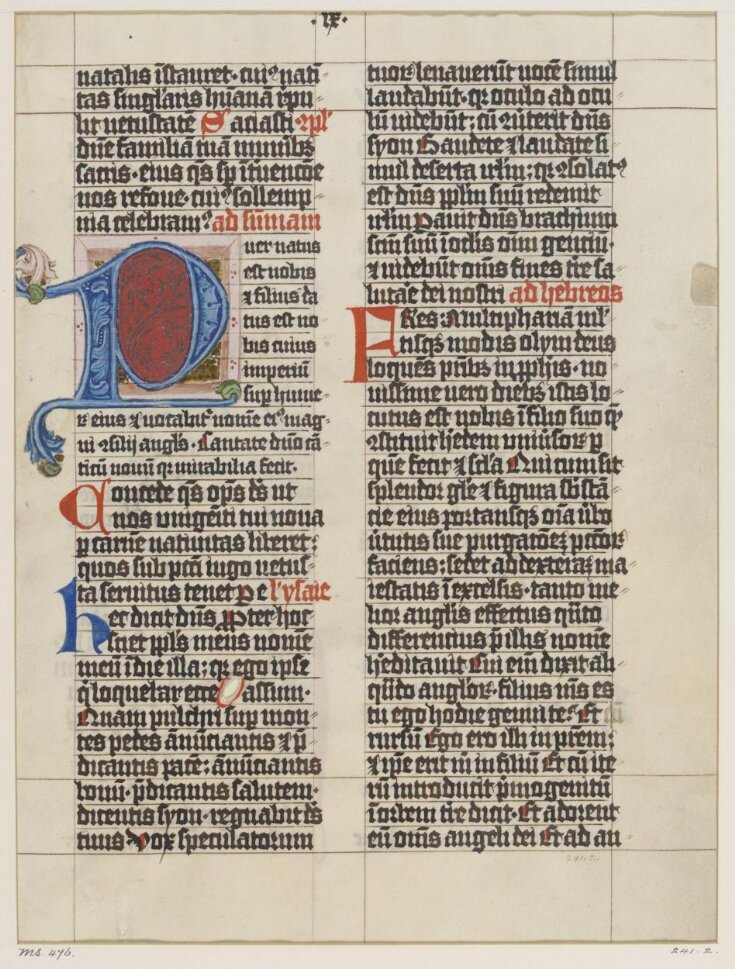 .ix.
natalis īstauret · cuiꝰ nati
tas singlaris hūanā r̄pu
lit uetustatē Saciasti ꝛpl̄
dn̄e familiā tuā munibꝫ
sacris · eius qs̄ sp̄ ītuencōe
nos refoue · cuiꝰ sollemp
nia celebramꝰ ad sūmam
Puer natus
est nobis
⁊ filius da
tus est no
bis cuius
imperiū
suꝑ hume
r eius ⁊ uocabit᷑ nomē eiꝰ mag
ni ꝯsilij angls̄ · Cantate dn̄o cā
ticū nouū qꝛ mirabilia fecit ·
Concede qs̄ op̄s ds̄ ut
nos unigēiti tui noua
ꝑ carnē natiuitas liberet ;
quos sub pccī iugo uetus
ta seruitus tenet Ꝑ e l'ysaie
hec dicit dn̄s Ꝓpter hoc
sciet ppl̄s meus nomē
meū ī die illa ; qꝛ ego ipse
q̄ loquebar ecce assum ·
Quam pulchri suꝑ mon
tes pedes ānūciantis ⁊ p̄
dicantis pacē ; ānūciantis
bonū · p̄dicantis salutem ·
dicentis syon · regnabit ds̄
tuus · Vox speculatorum
tuoꝝ leuauerūt uocē simul
laudabūt · qꝛ oculo ad ocu
lū uidebūt ; cū ꝯūterit dn̄s
syon Gaudete ⁊ laudate si
mul deserta irlm̄ ; qꝛ ꝯsolatꝰ
est dn̄s pplm̄ suū redemit
irlm̄ Pauit dn̄s brachium
scm̄ suū ī oclis oīm gentiū ·
⁊ uidebūt oms̄ fines tr̄e sa
lutāe dei nostri ad hebreos
FRes · Multiphariā ml̄
tisqꝫ modis olym deus
loquēs pr̄ibꝫ in ꝓphis · no
uissime uero diebꝫ istis lo
cutus est nobis ī filio suo quē
ꝯstituit h̄edem uniūsoꝝ ꝑ
quē fecit ⁊ scl̄a Qui cum sit
splendor gl̄e ⁊ figura sb̄stā
cie eius portansqꝫ oīa ūbo
ūtutis sue purgacōeꝫ pcc̄oꝝ
faciens ; sedet ad dexterā ma
iestatis ī excelsis · tanto me
lior anglis effectus quāto
differencius p̄ illis nomē
h̄editauit Cui eīm dixit ali
qn̄do angloꝝ · filius mꝰs es
tu ego hodie genui te? Et
rursū Ego ero illi in pr̄em ;
⁊ ip̄e erit m̄ in filiū Et cū ite
rū introducit p̄mogenitū
ī orbem tr̄e dicit · Et adorent
eū oms̄ angeli dei Et ad an
241.2.
MS. 476.
241.2.